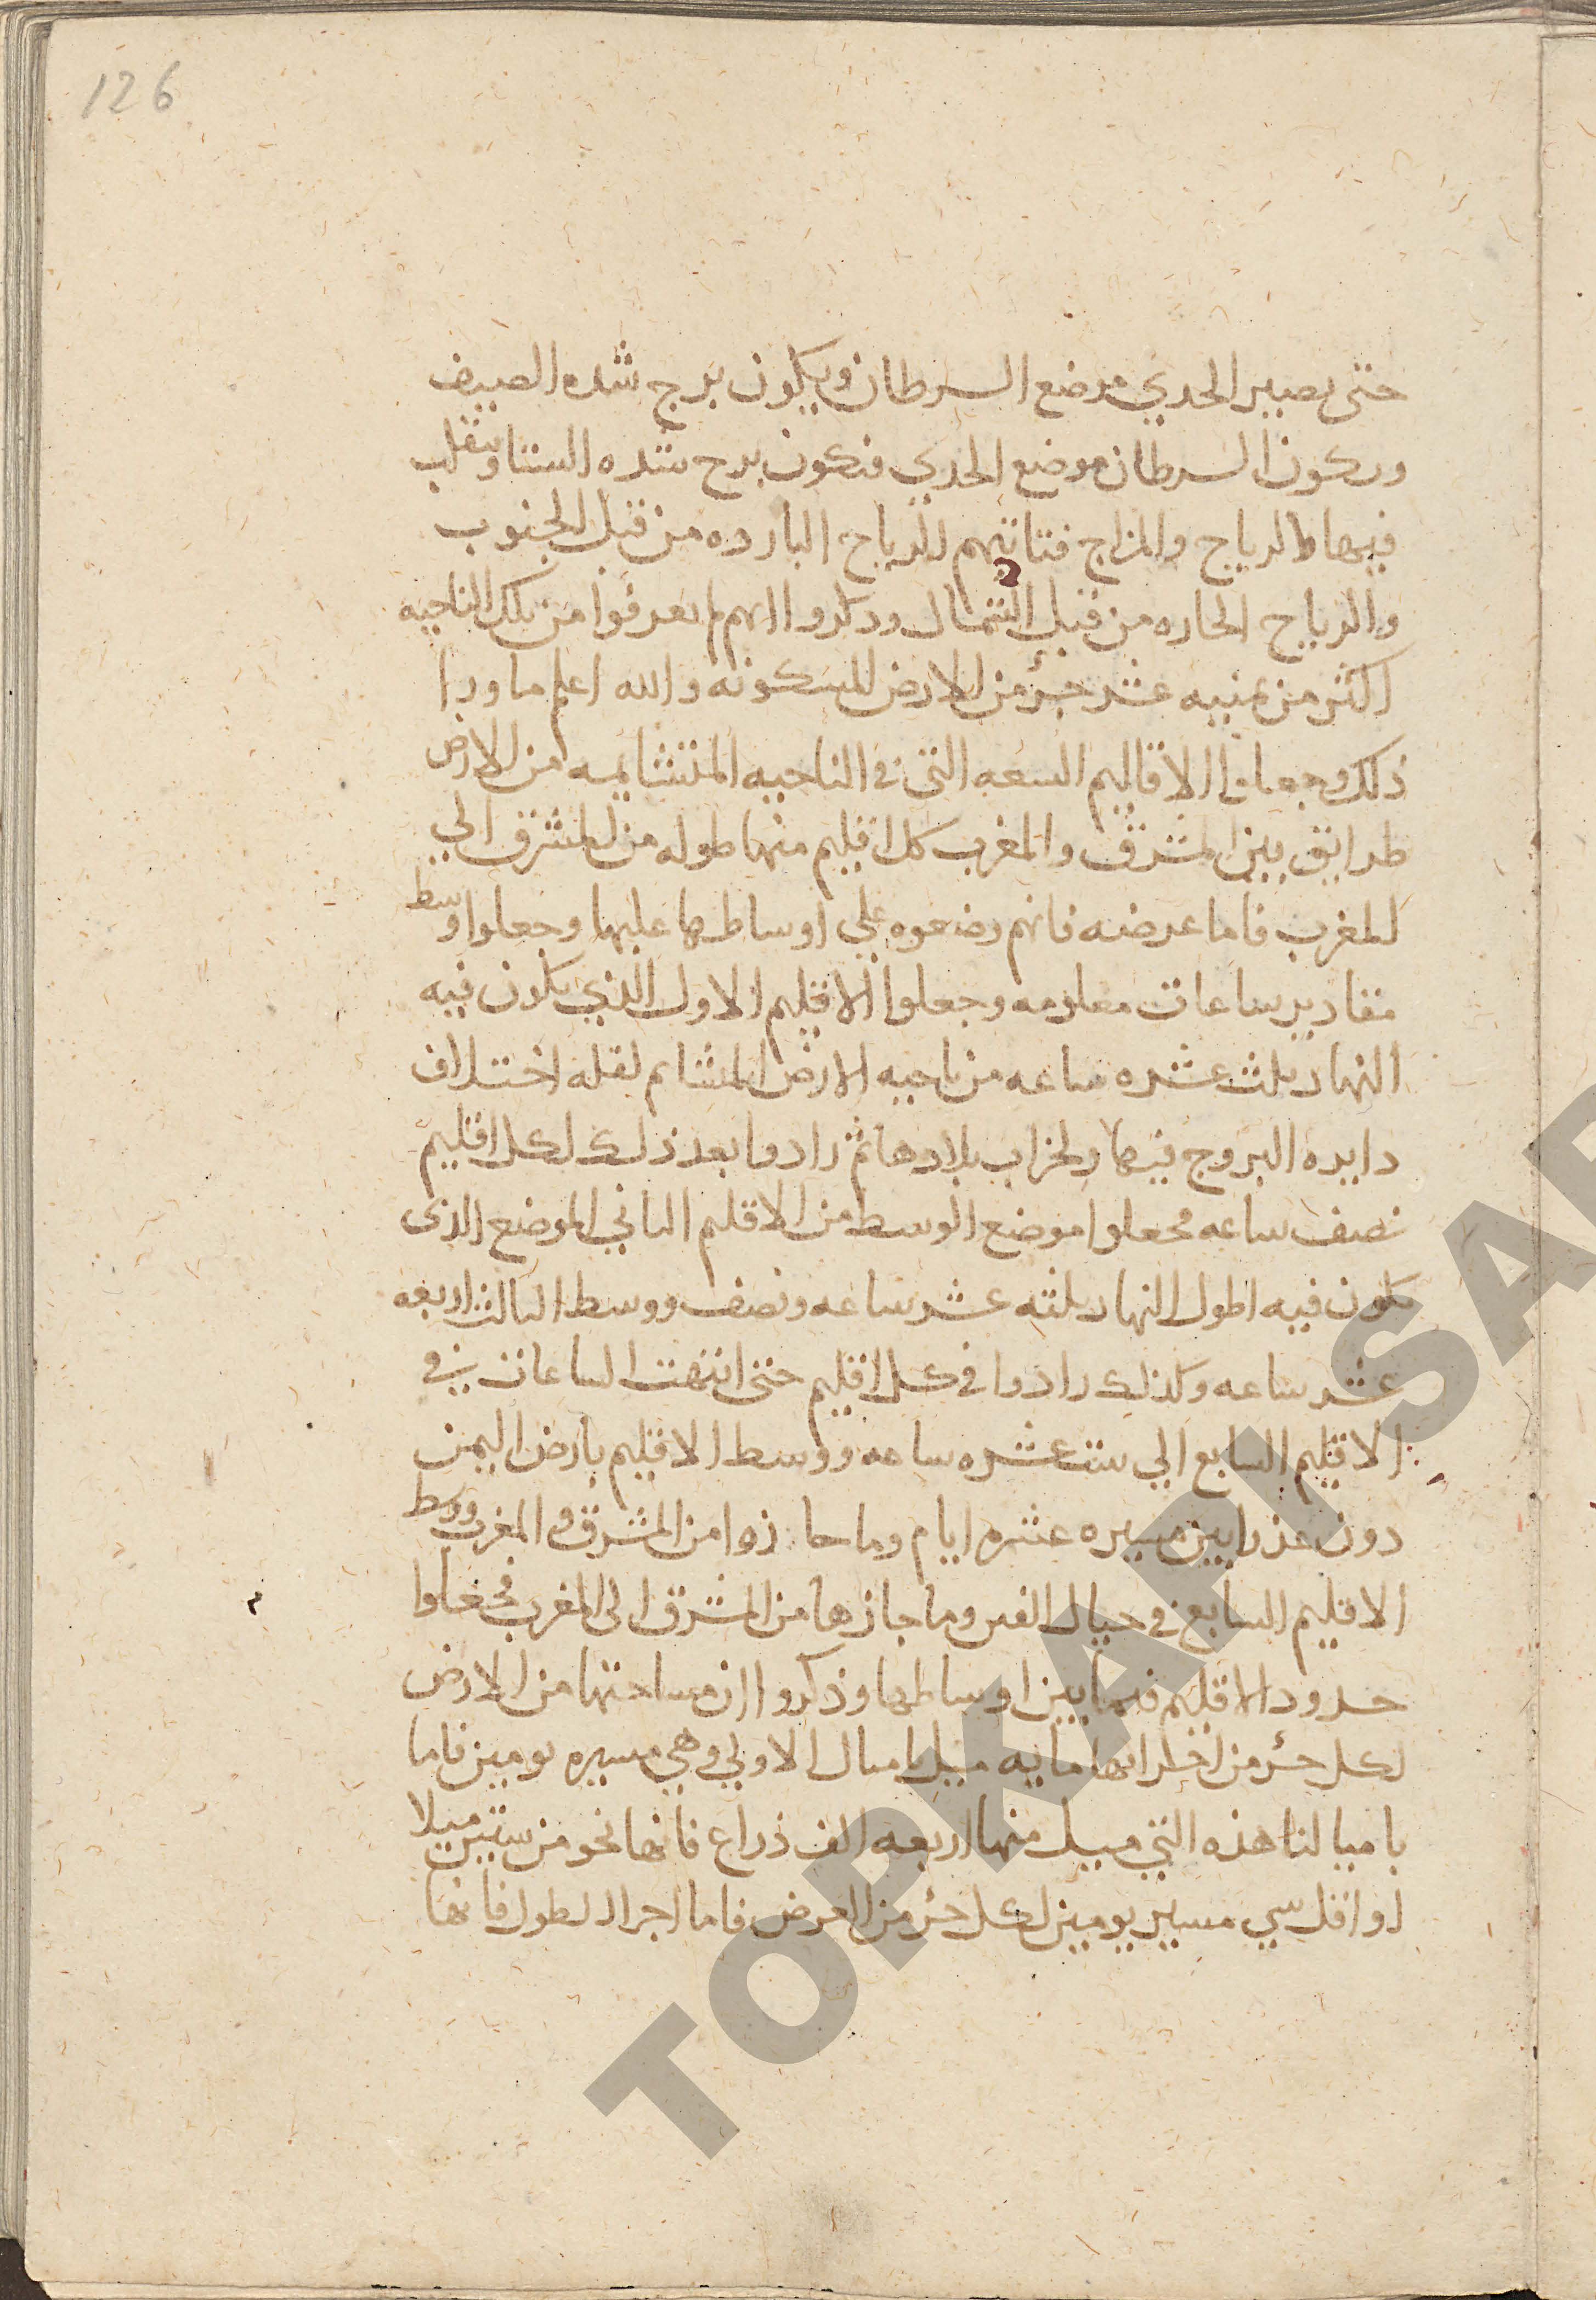 126
حتى يصير الجدي موضع السرطان ويكون برج شده الصيف
ويكون السرطان موضع الجدي فيكون برج شده الشتا وينقلب
فيها الرياح والمزاج فتاتيهم الرياح البارده من قبل الجنوب
والرياح الحاره من قبل الشمال وذكروا انهم لم يعرفوا من تلك الناحيه
اكثر من ثمنيه عشر جزء من الارض المسكونه والله اعلم ما ورا
ذلك وجعلوا الاقاليم السبعه التي في الناحيه المتشايمه من الارض
طرايق بين المشرق والمغرب كل اقليم منها طوله من المشرق الي
المغرب فاما عرضه فانهم وضعوه علي اوساطها عليها وجعلوا وسط
مقادير ساعات معلومه وجعلوا الاقليم الاول الذي يكون فيه
النهار ثلث عشره ساعه من ناحيه الارض المشايم لقله اختلاف
دايره البروج فيها ولخراب بلادها ثم زادوا بعد ذلك لكل اقليم
نصف ساعه فجعلوا موضع الوسط من الاقليم الثاني الموضع الذي
يكون فيه اطول النهار ثلثه عشر ساعه ونصف ووسط الثالث اربعه
عشر ساعه وكذلك زادوا في كل اقليم حتى انتهت الساعات في
الاقليم السابع الي ست عشره ساعه ووسط الاقليم بارض اليمن
دون مسيره عشره ايام وما حا زوا من المشرق والمغرب ووسط
الاقليم السابع في حيال وما جازها من المشرق الى المغرب فجعلوا
حدود الاقليم فيما بين اوساطها وذكروا ان مساحتها من الارض
لكل جزء من اجزائها مايه ميل باميال الاولي وهي مسيره يومين فاما
باميالنا هذه التي ميل منها اربعه الف ذراع فانها نحو من ستين ميلا
او اقل سي مسير يومين لكل جزء من العرض فاما اجزا الطول فانها
TOPKAPI SAR